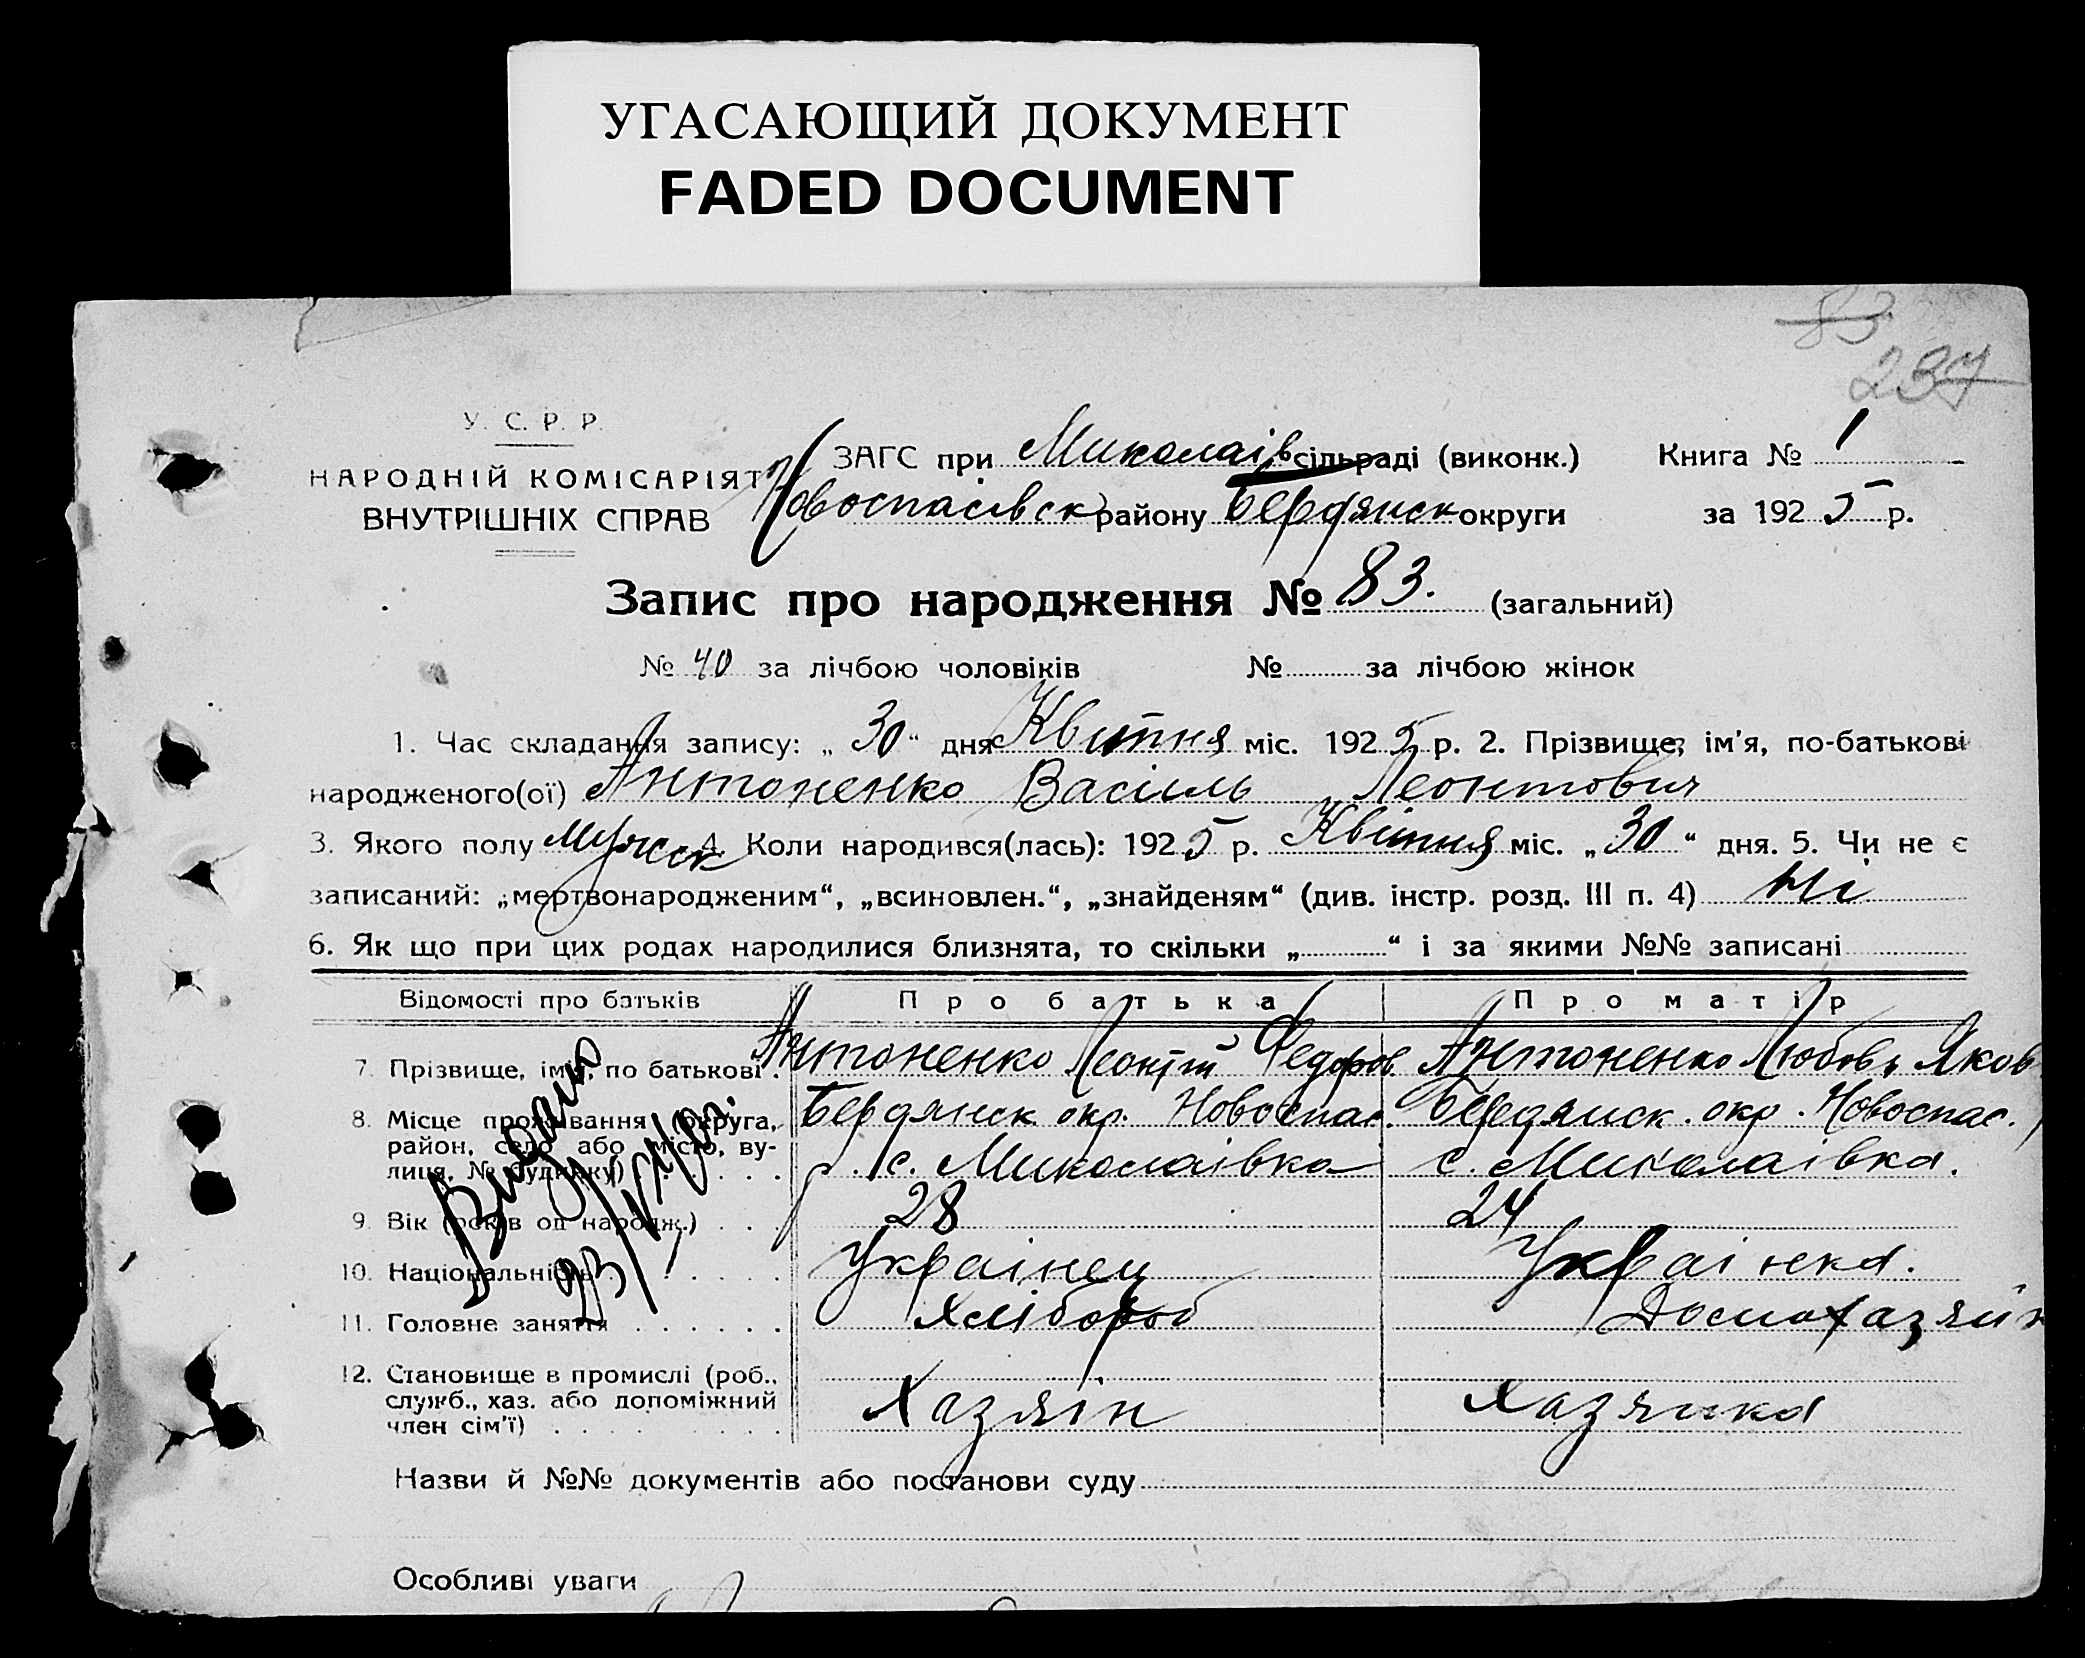 УГАСАЮЩИЙ ДОКУМЕНТ
FADED DOCUMENT
83
237
У. С. Р. Р.
НАРОДНІЙ КОМІСАРІЯТ
ВНУТРІШНІХ СПРАВ
ЗАГС при Миколаїв сільраді (виконк.) Книга № 1
Новоспасівск району Бердянск округи за 1925 р.
Запис про народження № 83. (загальний)
№ 40 за лічбою чоловіків № за лічбою жінок
1. Час складання запису: „30“ дня Квітня міс. 1925 р. 2. Прізвище, ім'я, по-батькові
народженого(ої) Антоненко Василь Леонтович
3. Якого полу Мужск 4. Коли народився(лась): 1925 р. Квітня міс. „30“ дня. 5. Чи не є
записаний: „мертвонародженим“, „всиновлен.“, „знайденям“ (див. інстр. розд. III п. 4) Ні
6. Як що при цих родах народилися близнята, то скільки „ “ і за якими №№ записані
Відомості про батьків Про батька Про матір
7. Прізвище, ім'я, по батькові. Антоненко Леонтій Федоров. Антоненко Любовь Яков
8. Місце проживання (округа, Бердянск. окр. Новоспас. Бердянск. окр. Новоспас.
район, село або місто, ву-
лиця, № будинку) р. с. Миколаівка с. Миколаівка.
9. Вік (років од народж.) 28 24
10. Національність Українец Українка.
11. Головне заняття Хлібороб Домохазяйк
12. Становище в промислі (роб.,
служб., хаз. або допоміжний
член сім'ї) Хазяін Хазяйка
Видано
Назви й №№ документів або постанови суду
Особливі уваги